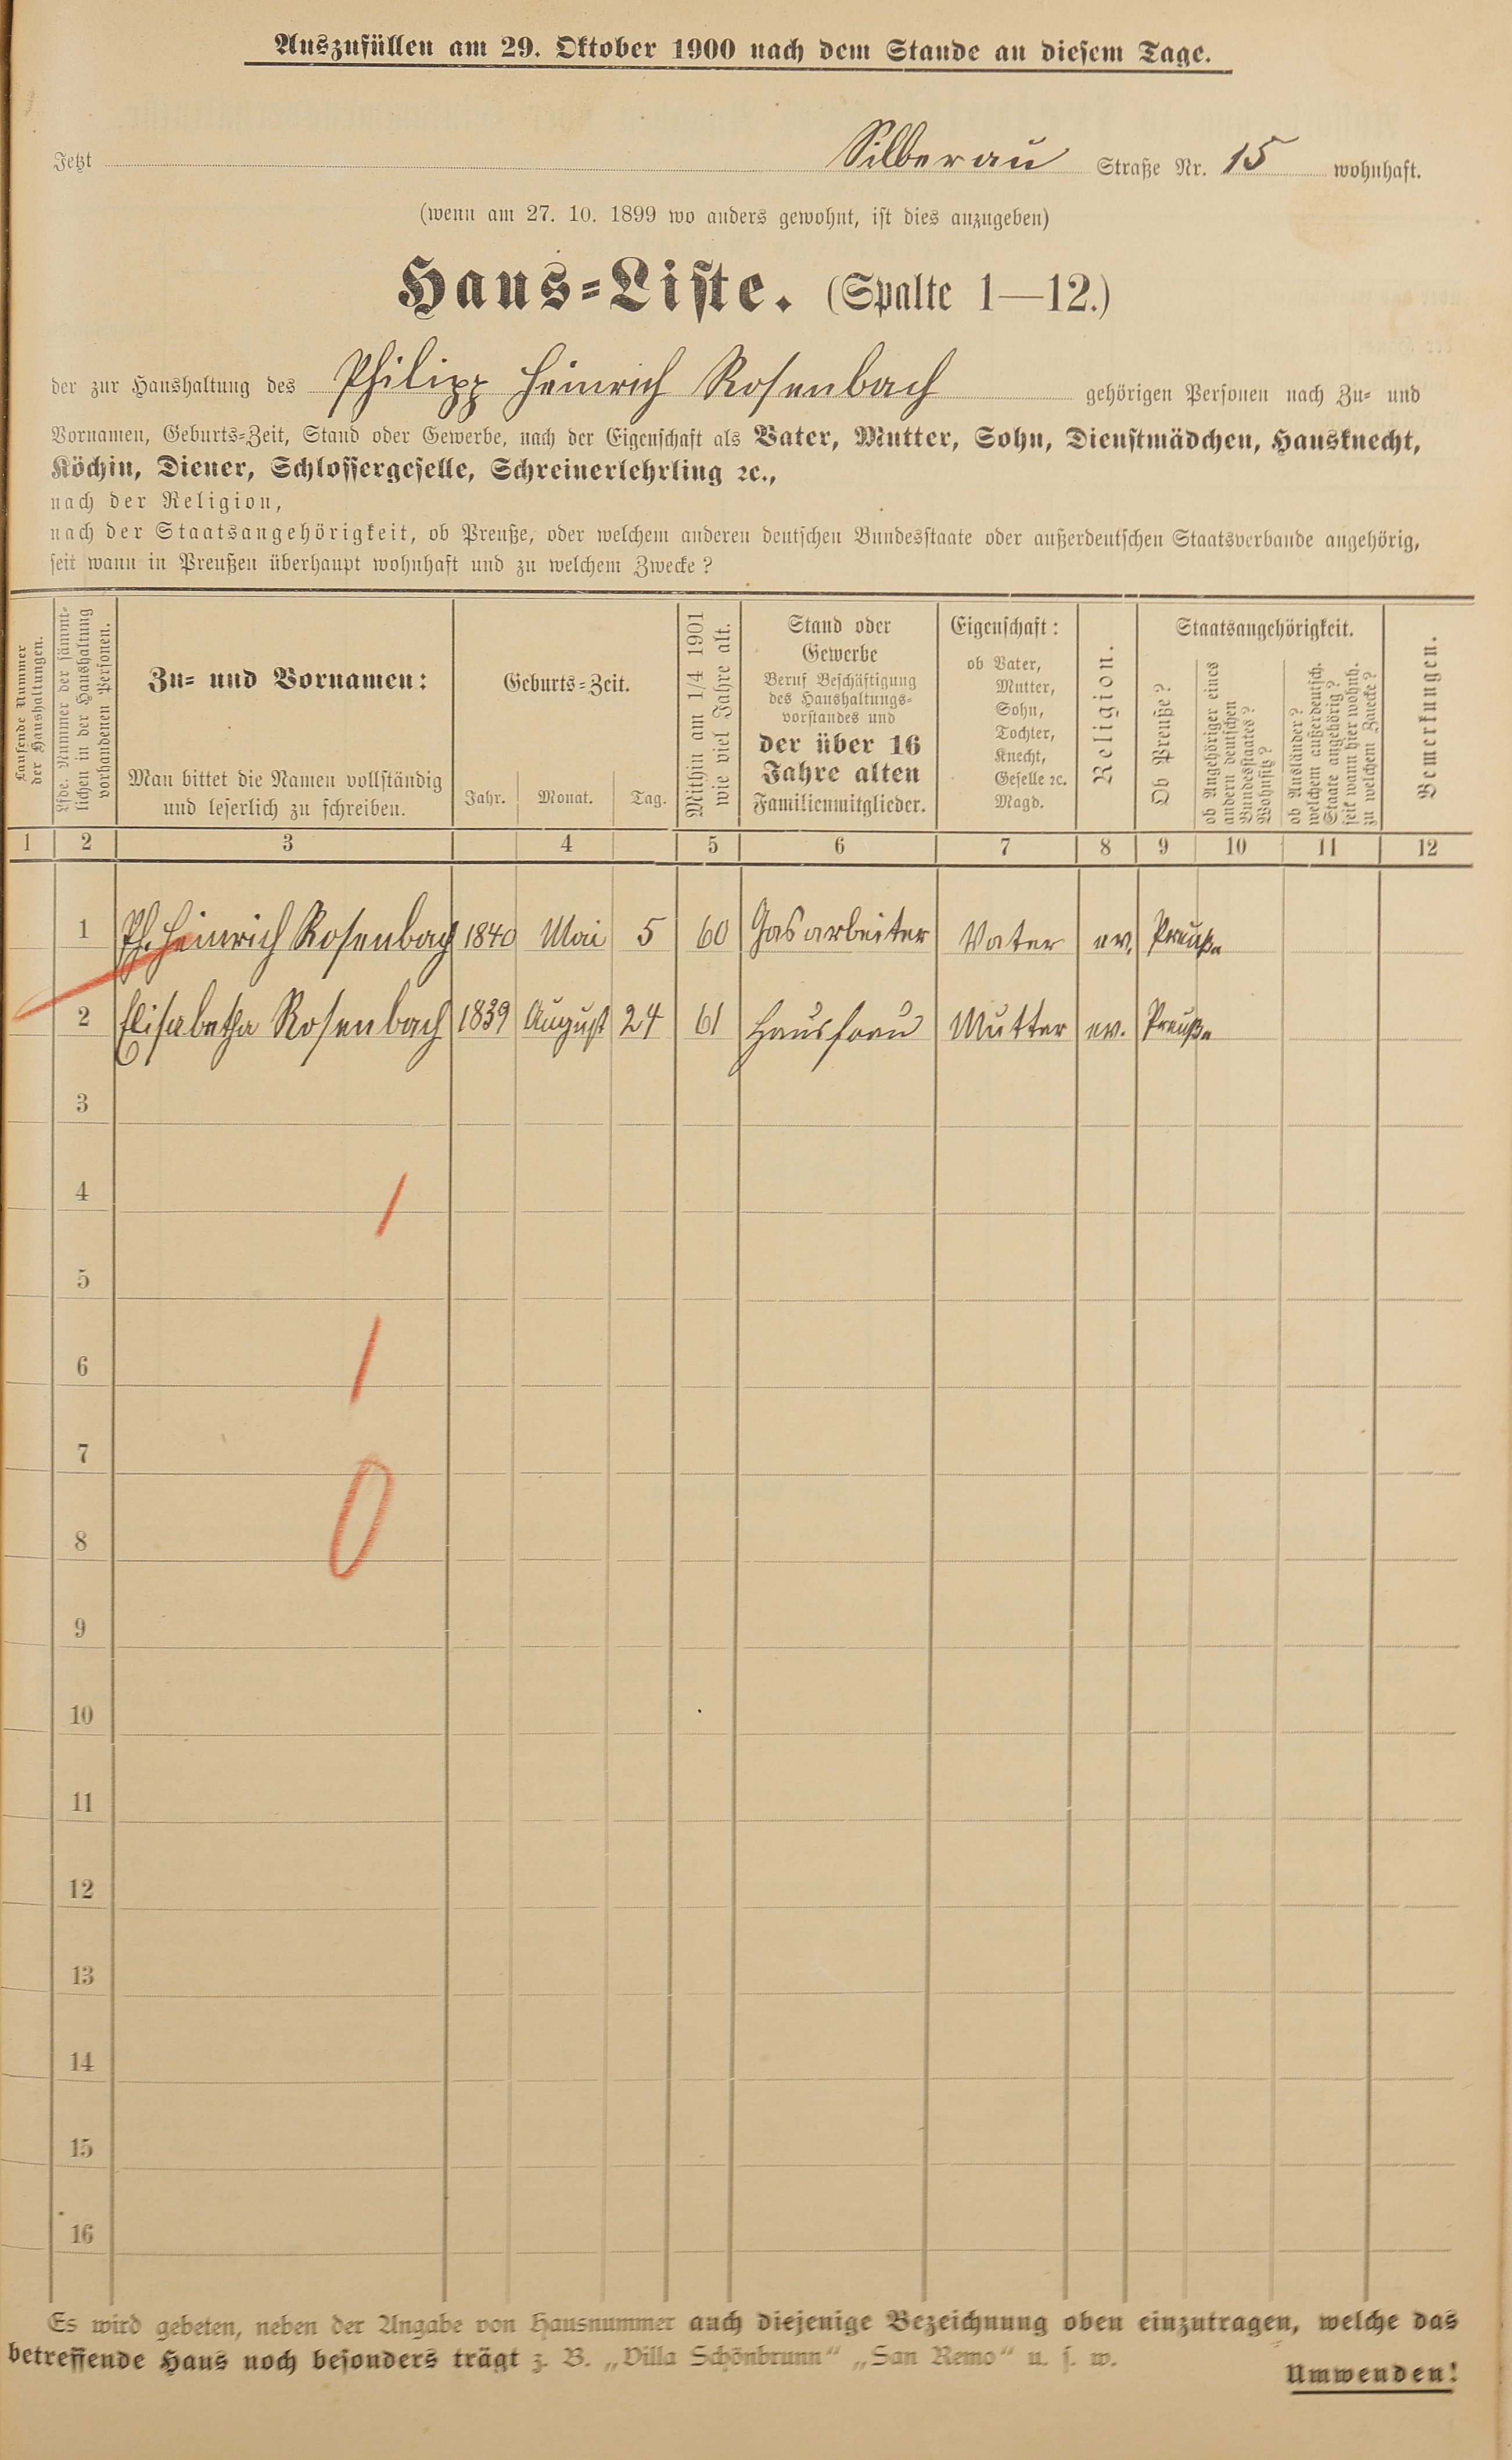 Auszufüllen am 29. Oktober 1900 nach dem Stande an diesem Tage.
Jetzt Silberau Straße Nr. 15 wohnhaft.
(wenn am 27. 10. 1899 wo anders gewohnt, ist dies anzugeben)
Haus=Liste. (Spalte 1—12.)
der zur Haushaltung des Philipp Heinrich Rosenbach gehörigen Personen nach Zu= und
Vornamen, Geburts=Zeit, Stand oder Gewerbe, nach der Eigenschaft als Vater, Mutter, Sohn, Dienstmädchen, Hausknecht,
Köchin, Diener, Schlossergeselle, Schreinerlehrling ꝛc.,
nach der Religion,
nach der Staatsangehörigkeit, ob Preuße, oder welchem anderen deutschen Bundesstaate oder außerdeutschen Staatsverbande angehörig,
seit wann in Preußen überhaupt wohnhaft und zu welchem Zwecke?
Laufende Nummer
der Haushaltungen.
Lfde. Nummer der sämmt=
lichen in der Haushaltung
vorhandenen Personen.
Zu= und Vornamen:
Man bittet die Namen vollständig
und leserlich zu schreiben.
Geburts=Zeit.
Jahr. Monat. Tag.
Mithin am 1/4 1901
wie viel Jahre alt.
Stand oder
Gewerbe
Beruf Beschäftigung
des Haushaltungs=
vorstandes und
der über 16
Jahre alten
Familienmitglieder.
Eigenschaft:
ob Vater,
Mutter,
Sohn,
Tochter,
Knecht,
Geselle ꝛc.
Magd.
Religion.
Staatsangehörigkeit.
Ob Preuße?
ob Angehöriger eines
andern deutschen
Bundesstaates?
Wohnsitz?
ob Ausländer?
welchem außerdeutsch.
Staate angehörig?
seit wann hier wohnh.
zu welchem Zwecke?
Bemerkungen.
1 2 3 4 5 6 7 8 9 10 11 12
1 Ph. Heinrich Rosenbach 1840 Mai 5 60 Gasarbeiter Vater ev. Preuße
2 Elisabetha Rosenbach 1839 August 24 61 Hausfrau Mutter ev. Preuße
3
4
5
6
7
8
9
10
11
12
13
14
15
16
Es wird gebeten, neben der Angabe von Hausnummer auch diejenige Bezeichnung oben einzutragen, welche das
betreffende Haus noch besonders trägt z. B. „Villa Schönbrunn“ „San Remo“ u. s. w.
Umwenden!